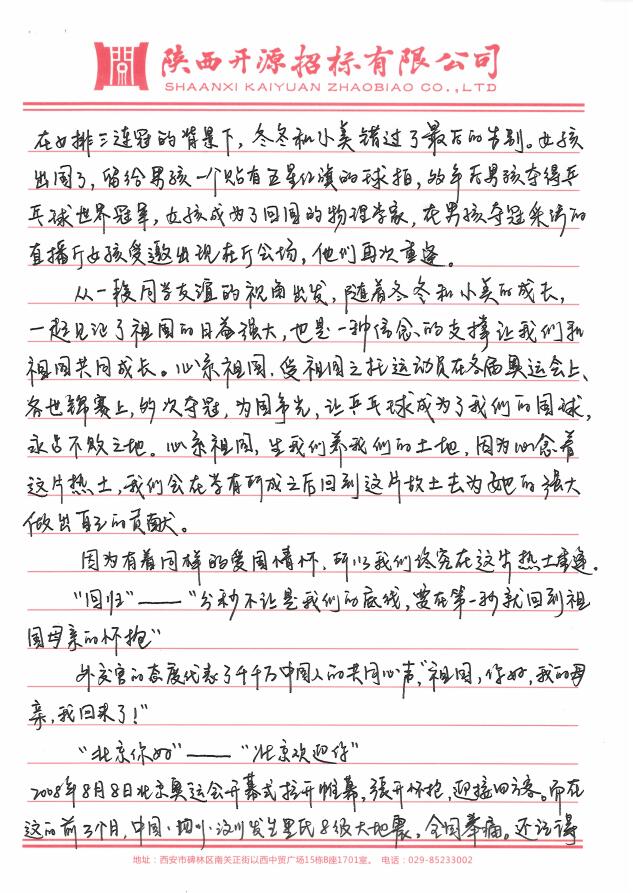 陕西开源招标有限公司
SHAANXI KAIYUAN ZHAOBIAO CO.,LTD
在女排三连冠的背景下，冬冬和小美错过了最后的告别。女孩
出国了，留给男孩一个贴有五星红旗的球拍，的年后男孩夺得乒
乓球世界冠军，女孩成为了回国的物理学家，在男孩夺冠采访的
直播厅女孩受邀出现在厅会场，他们再次重逢。
从一段同学友谊的视角出发，随着冬冬和小美的成长，
一起见证了祖国的日益强大，也是一种信念的支撑让我们和
祖国共同成长。心系祖国，受祖国之托运动员在各届奥运会上、
各世锦赛上，的次夺冠，为国争光，让乒乓球成为了我们的国球，
永占不败之地。心系祖国，生我们养我们的土地，因为心念着
这片热土，我们会在学有所成之后回到这片故土去为她的强大
做出自己的贡献。
因为有着同样的爱国情怀，所以我们终究在这片热土重逢。
“回归”——“分秒不让是我们的底线，要在第一秒就回到祖
国母亲的怀抱”
外交官的态度代表了千千万中国人的共同心声，“祖国，你好，我的母
亲，我回来了！”
“北京你好”——“北京欢迎你”
2008年8月8日北京奥运会开幕式拉开帷幕，张开怀抱，迎接四方客。而在
这的前3个月，中国·四川·汶川发生里氏8级大地震，全国奉痛。还记得
地址：西安市碑林区南关正街以西中贸广场15栋B座1701室。 电话：029-85233002